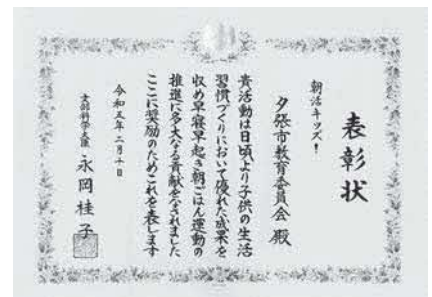 表彰状
朝活キッズ！
夕張市教育委員会 殿
貴活動は日頃より子供の生活
習慣づくりにおいて優れた成果を
収め早寝早起き朝ごはん運動の
推進に多大なる貢献をされました
ここに奨励のためこれを表します
令和五年二月十日
文部科学大臣 永岡桂子